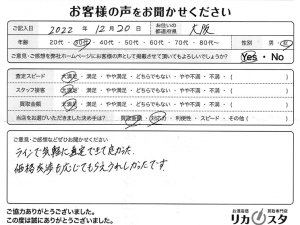 お客様の声をお聞かせください
ご記入日 2022年12月20日 お住いの都道府県 大阪
年齢 20代・30代・40代・50代・60代・70代・80代〜 性別 男・女
ご意見・ご感想を弊社ホームページにお客様の声として掲載させて頂いてもよろしいでしょうか? Yes・No
査定スピード 大満足・満足・やや満足・どちらでもない・やや不満・不満・( )
スタッフ接客 大満足・満足・やや満足・どちらでもない・やや不満・不満・( )
買取金額 大満足・満足・やや満足・どちらでもない・やや不満・不満・( )
当店をお選びいただきました決め手は? 買取金額・対応力・利便性・スピード・その他( )
ご意見・ご感想などぜひお聞かせください。
ラインで気軽に査定できて良かった。
価格交渉も応じてもらえうれしかったです。
ご協力ありがとうございました。
このたびはありがとうございました。
お酒買取 買取専門店
リカスタ